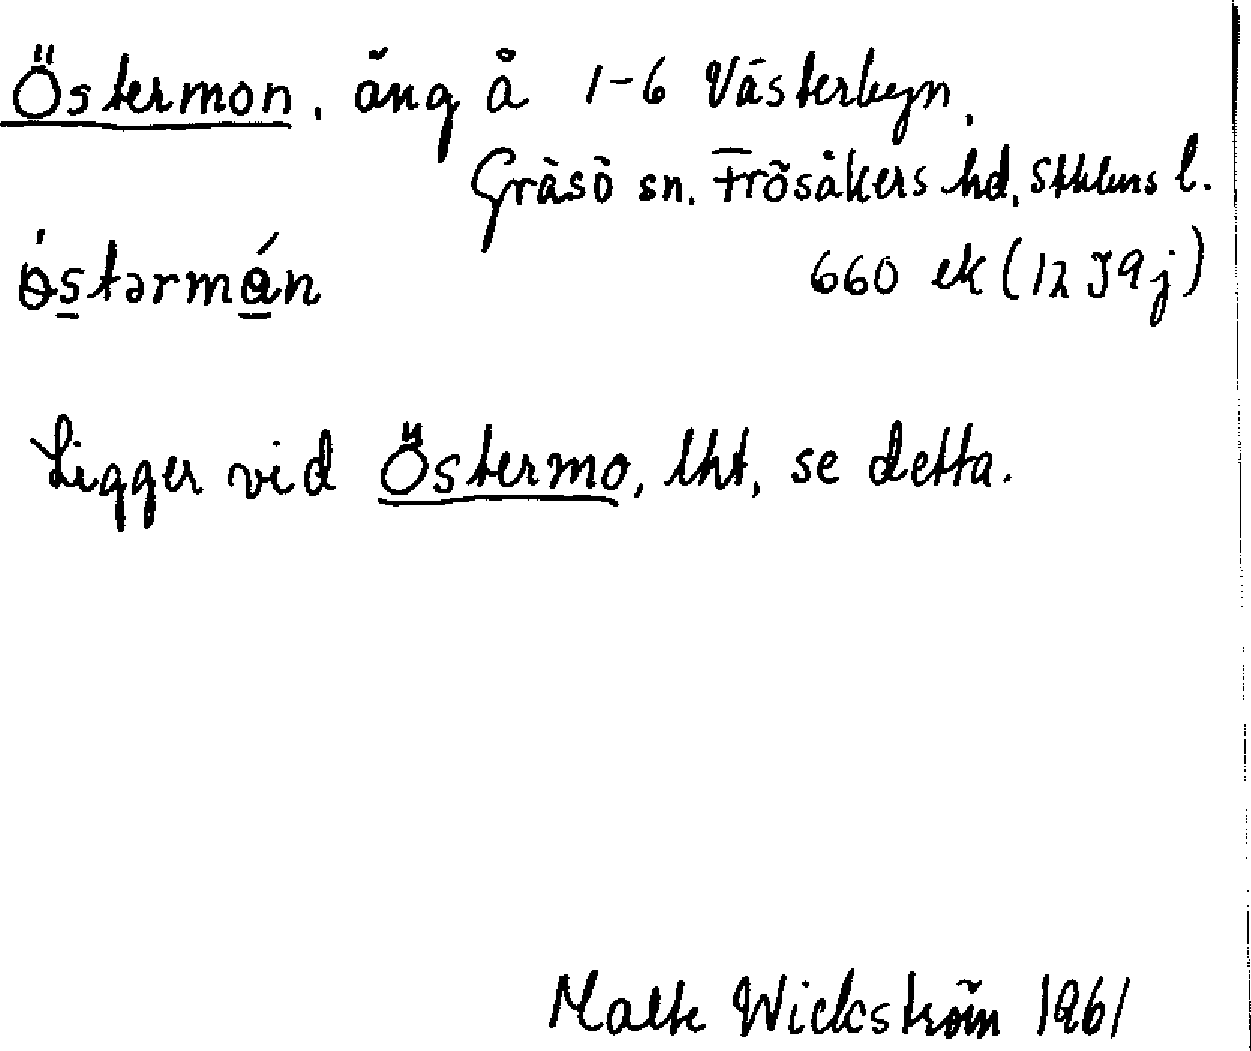 Östermon, äng å 1-6 Västerbyn,
Gräsö sn. Frösåkers hd, Sthlms l.
östərmón 660 ek (12 I 9 j)
Ligger vid Östermo, lht, se detta.
Malte Wickström 1961